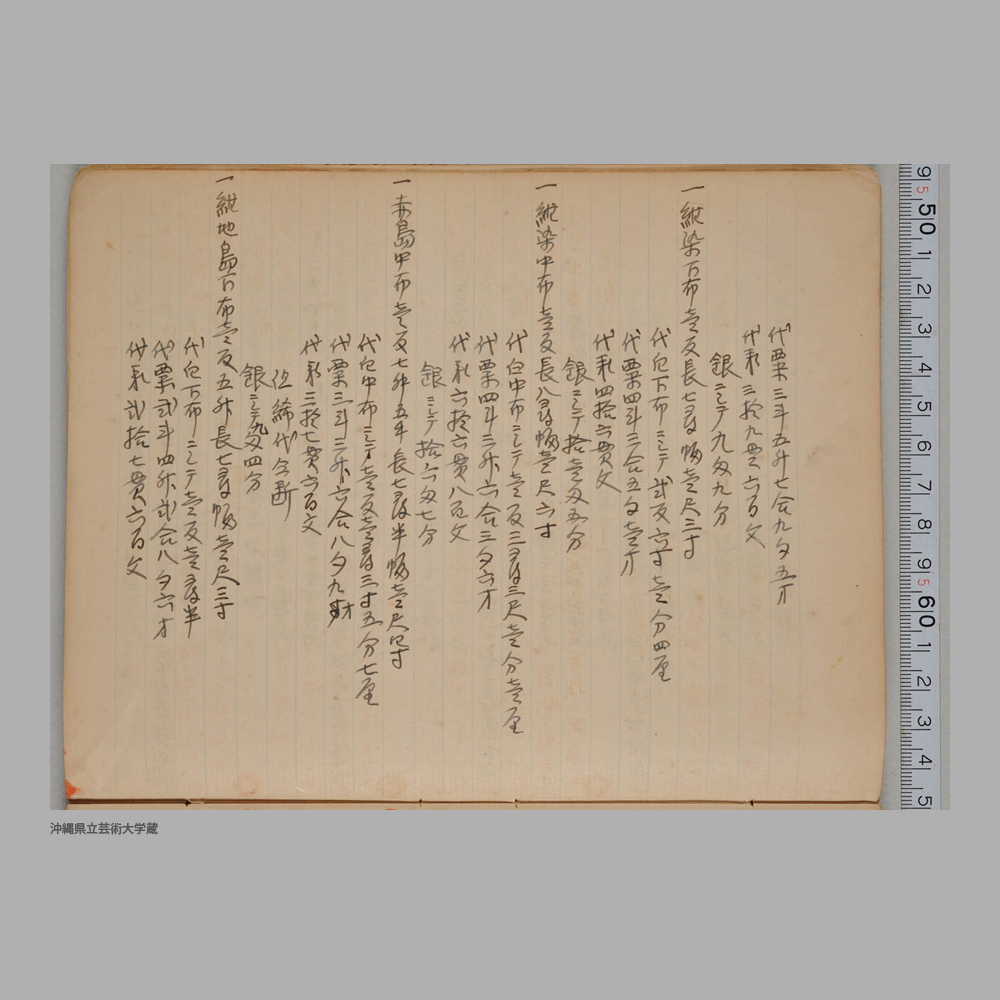 代粟三斗五升七合九夕五才
代釆三拾九貫六百文
銀ニシテ九匁九分
一紺染下布壱反長七尋幅壱尺三寸
代白下布ニシテ弐反六寸壱分四厘
代粟四斗三合五夕壱才
代釆四拾六貫文
銀ニシテ拾壱匁五分
一紺染中布壱反長八尋幅壱尺六寸
代白中布ニシテ壱反三尋三尺壱分壱厘
代粟四斗三升六合三夕六才
代釆六拾六貫八百文
銀ニシテ拾六匁七分
一赤島中布壱反七升五年長七尋半幅壱尺四寸
代白中布ニシテ壱反壱尋三寸五分七厘
代粟三斗三升六合八夕九才
代釆三拾七貫六百文
但締代合断
銀ニシテ九匁四分
一紺地島下布壱反五升長七尋幅壱尺三寸
代白下布ニシテ壱反壱尋半
代粟弐斗四升弐合八夕六才
代釆弐拾七貫六百文
9 5 50 1 2 3 4 5 6 7 8 9 5 60 1 2 3 4 5
沖縄県立芸術大学蔵